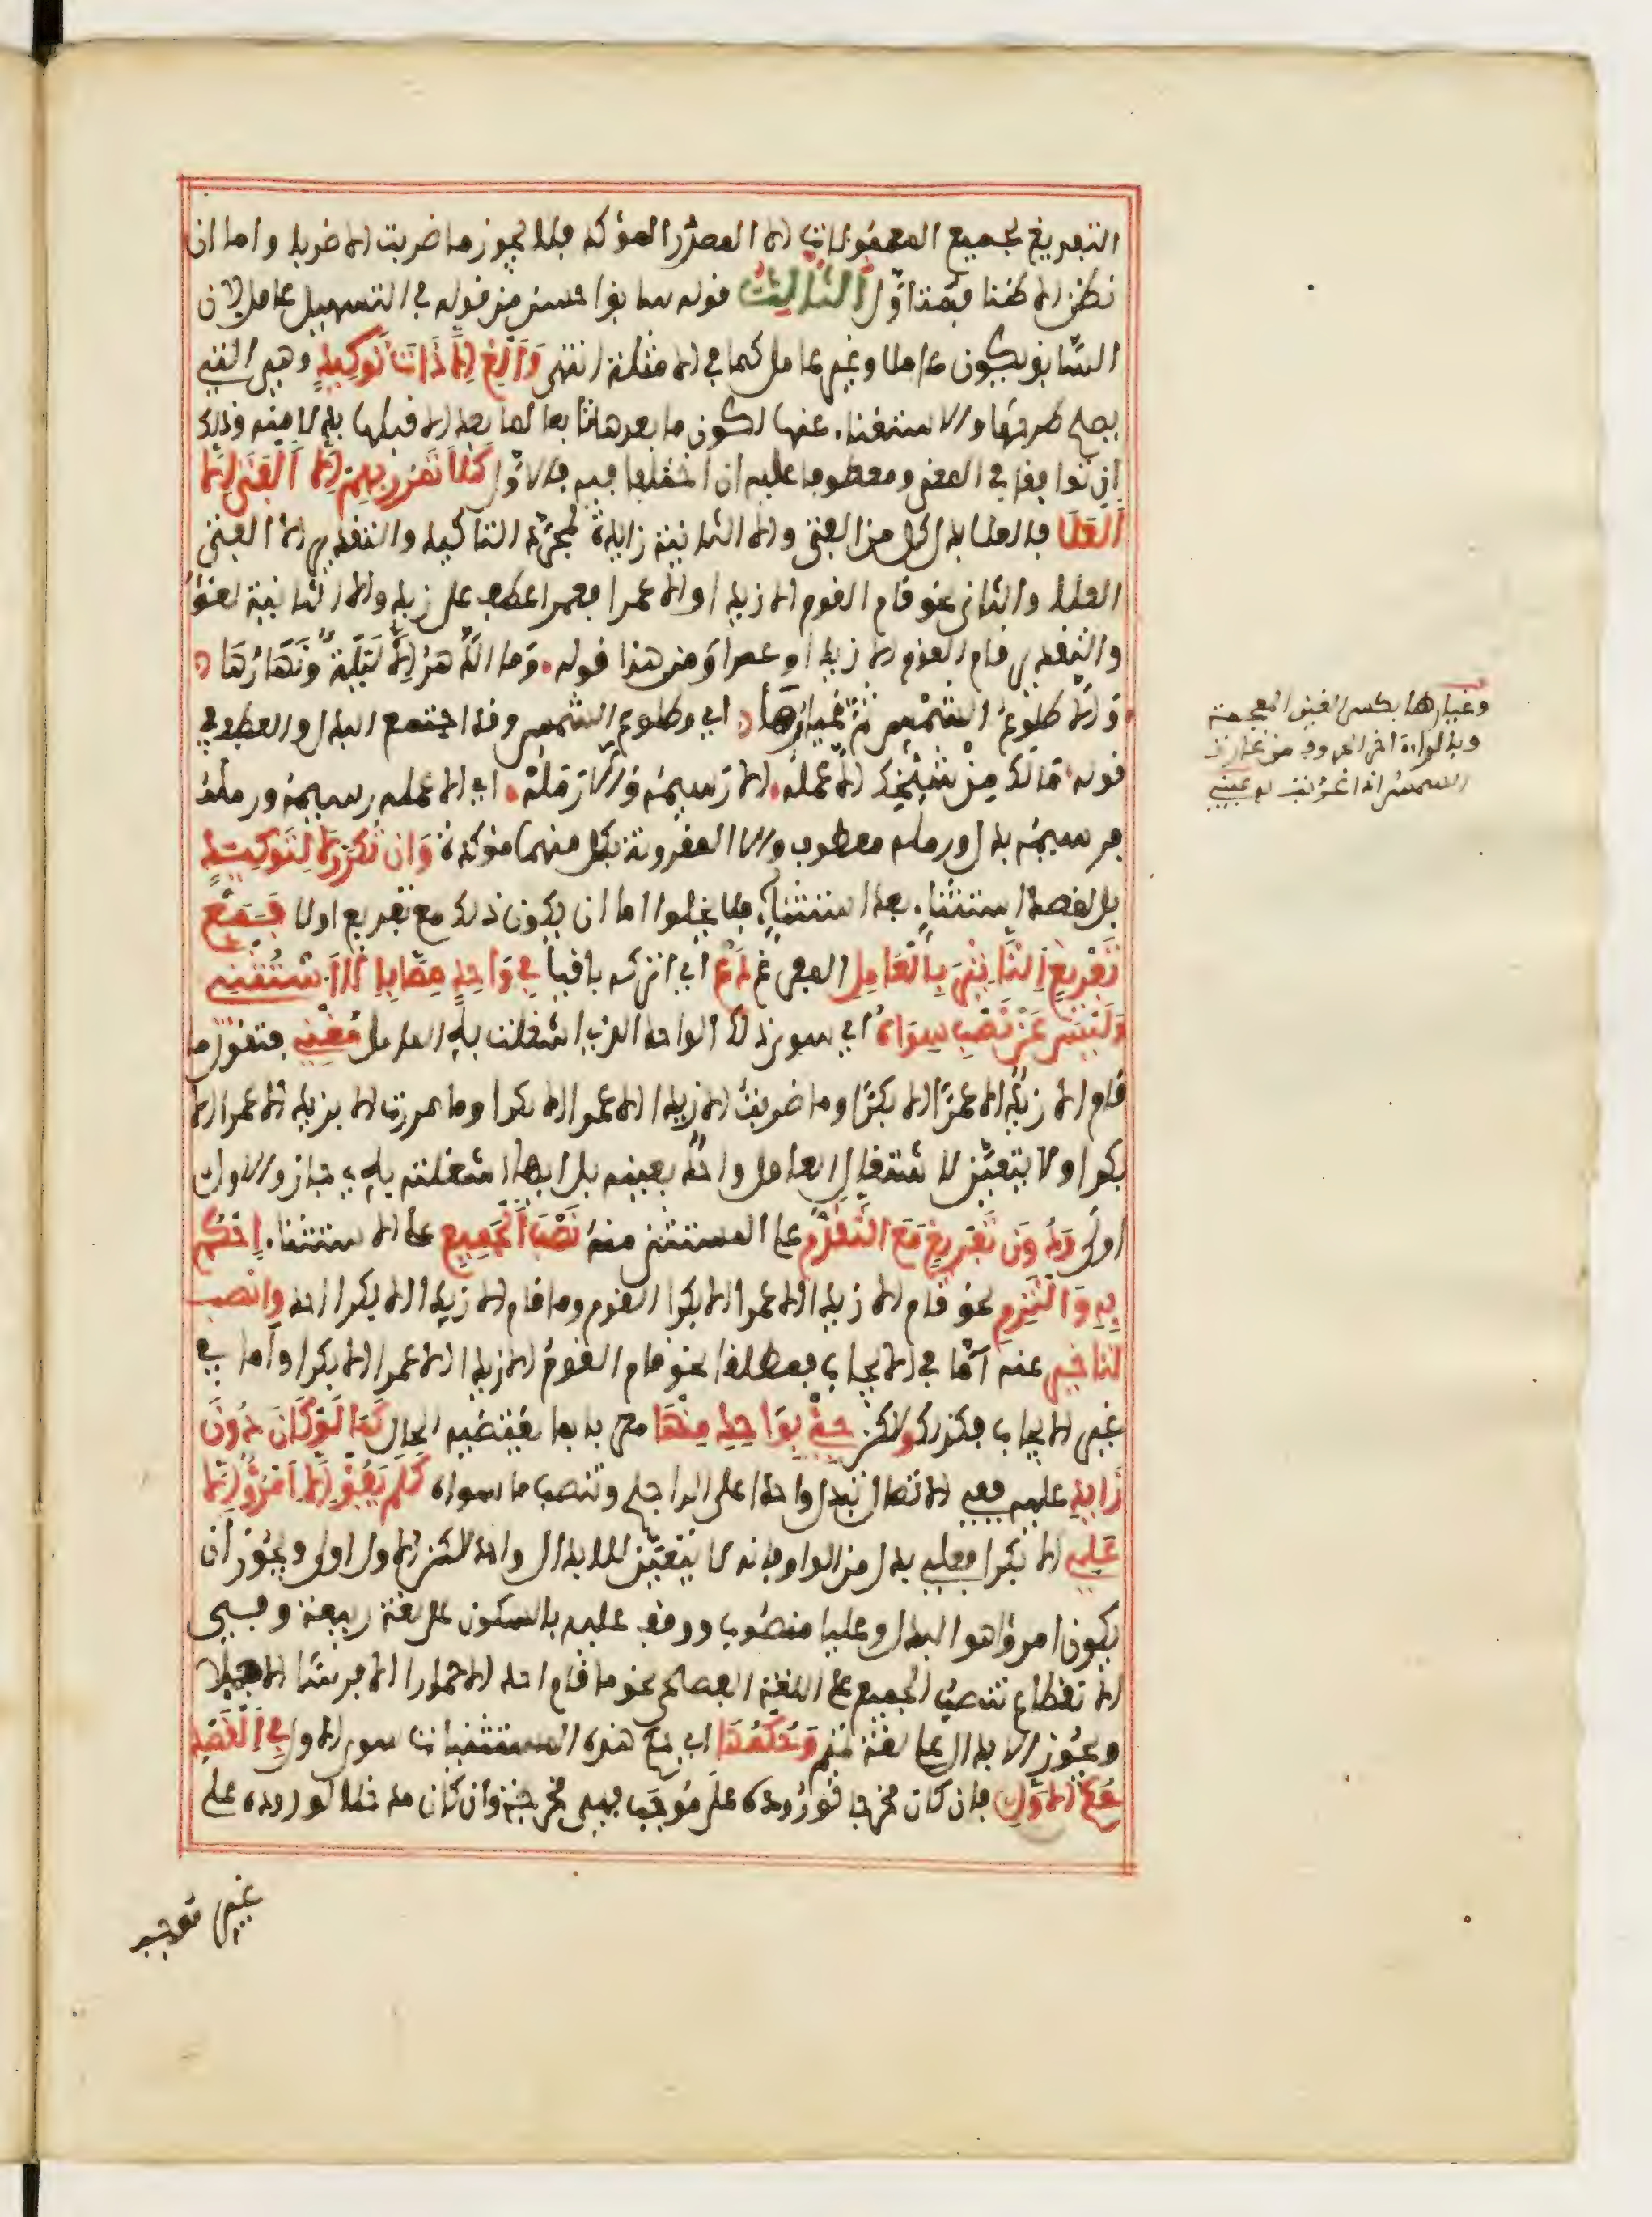 التفريغ لجميع المعمولات الا المصدر المؤكد فلا يجوز ما ضربت الا ضربا واما ان
نظن الا ظنا فمتاول الثالث قوله سابق احسن من قوله في التسهيل عامل لان
السابق يكون عاملا وغير عامل كما في الا مثلة انتهى وَأَلْغِ إِلَّا ذَاتَ تَوْكِيدٍ وهي التي
يصح طرحها والاستغناء عنها لكون ما بعدها تابعا لما بعد الا قبلها بدلا منه وذلك
ان توافقا في المعنى ومعطوفا عليه ان اختلفا فيه فالاول كَلَا تَمْرُرْ بِهِمْ إِلَّا الْفَتَى إِلَّا
الْعَلَا فالعلا بدل كل من الفتى والا الثانية زايدة لمجرد التاكيد والتقدير الا الفتى
العلا والثاني نحو قام القوم الا زيدا والا عمرا فعمرا عطف على زيد والا الثانية لغو
والتقدير قام القوم الا زيدا وعمرا ومن هذا قوله وَما الدَّهْرُ إِلَّا لَيْلَةٌ وَنَهَارُهَا
وَإِلَّا طُلُوعُ الشَّمْسِ ثُمَّ غِيَارُهَا اي وطلوع الشمس وقد اجتمع البدل والعطف في
قوله مَا لَكَ مِنْ شَيْخِكَ إِلَّا عَمَلُهْ إِلَّا رَسِيمُهُ وَإِلَّا رَمَلُهْ اي الا عمله رسيمه ورمله
فرسيمه بدل ورمله معطوف والا المقرونة بكل منهما مؤكدة وَإِنْ تُكَرَّرْ لَا لِتَوْكِيدٍ
بل لقصد استثناء بعد استثناء فلا يخلوا اما ان يكون ذلك مع تفريع اولا فَمَعْ
تَفْرِيغٍ التَّأْثِيرَ بِالْعَامِلِ المفرغ دَعْ اي اتركه باقيا فِي وَاحِدٍ مِمَّا بِإِلَّا اسْتُثْنِي
وَلَيْسَ عَنْ نَصْبِ سِوَاهُ اي سوى ذلك الواحد الذي اشغلت به العامل مُغْنِي فتقول ما
قام الا زيد الا عمرا الا بكرا وما ضربت الا زيدا الا عمرا الا بكرا وما مررت الا بزيد الا عمرا الا
بكرا ولا يتعين لا شتغال العامل واحد بعينه بل ايها اشغلته به جاز والاول
اولى وَدُونَ تَفْرِيغٍ مَعَ التَّقَدُّمِ على المستثنى منه نَصْبَ الْجَمِيعِ على الا ستثناء احْكُمْ
بِهِ وَالْتَزِمِ نحو قام الا زيدا الا عمرا الا بكرا القوم وما قام الا زيدا الا بكرا احد وَانْصِبْ
لِتَأْخِيرٍ عنه اما في الا يجاب فمطلقا نحو قام القوم الا زيدا الا عمرا الا بكرا واما في
غير الا يجاب فكذلك ولكن جِئْ بِوَاحِدٍ مِنْهَا معربا بما يقتضيه الحال كَمَا لَوْ كَانَ دُونَ
زَائِدِ عليه ففي الا تصال تبدل واحدا على الراجح وتنصب ما سواه كَلَمْ يَفُوا إِلَّا امْرُؤٌ إِلَّا
عَلِي الا بكرا فعلي بدل من الواو فانه لا يتعين للابدال واحد لكن الاول اولى ويجوز ان
يكون امرؤ هو البدل وعليا منصوب ووقف عليه بالسكون على لغة ربيعة وفي
الا نقطاع تنصب الجميع على اللغة الفصحى نحو ما قام احد الا حمارا الا فرسا الا جملا
ويجوز الا بدال على لغة تميم وَحُكْمُهَا اي هذه المستثنيات سوى الاول فِي الْقَصْدِ
حُكْمُ الاوَّلِ فان كان مخرجا لوروده على موجب فهي مخرجة وان كان مدخلا لوروده على
غير موجب
وغيارها بكسر الغين المعجمة
وبالراء اخر الحروف من غارت
الشمس اذا غربت عيني